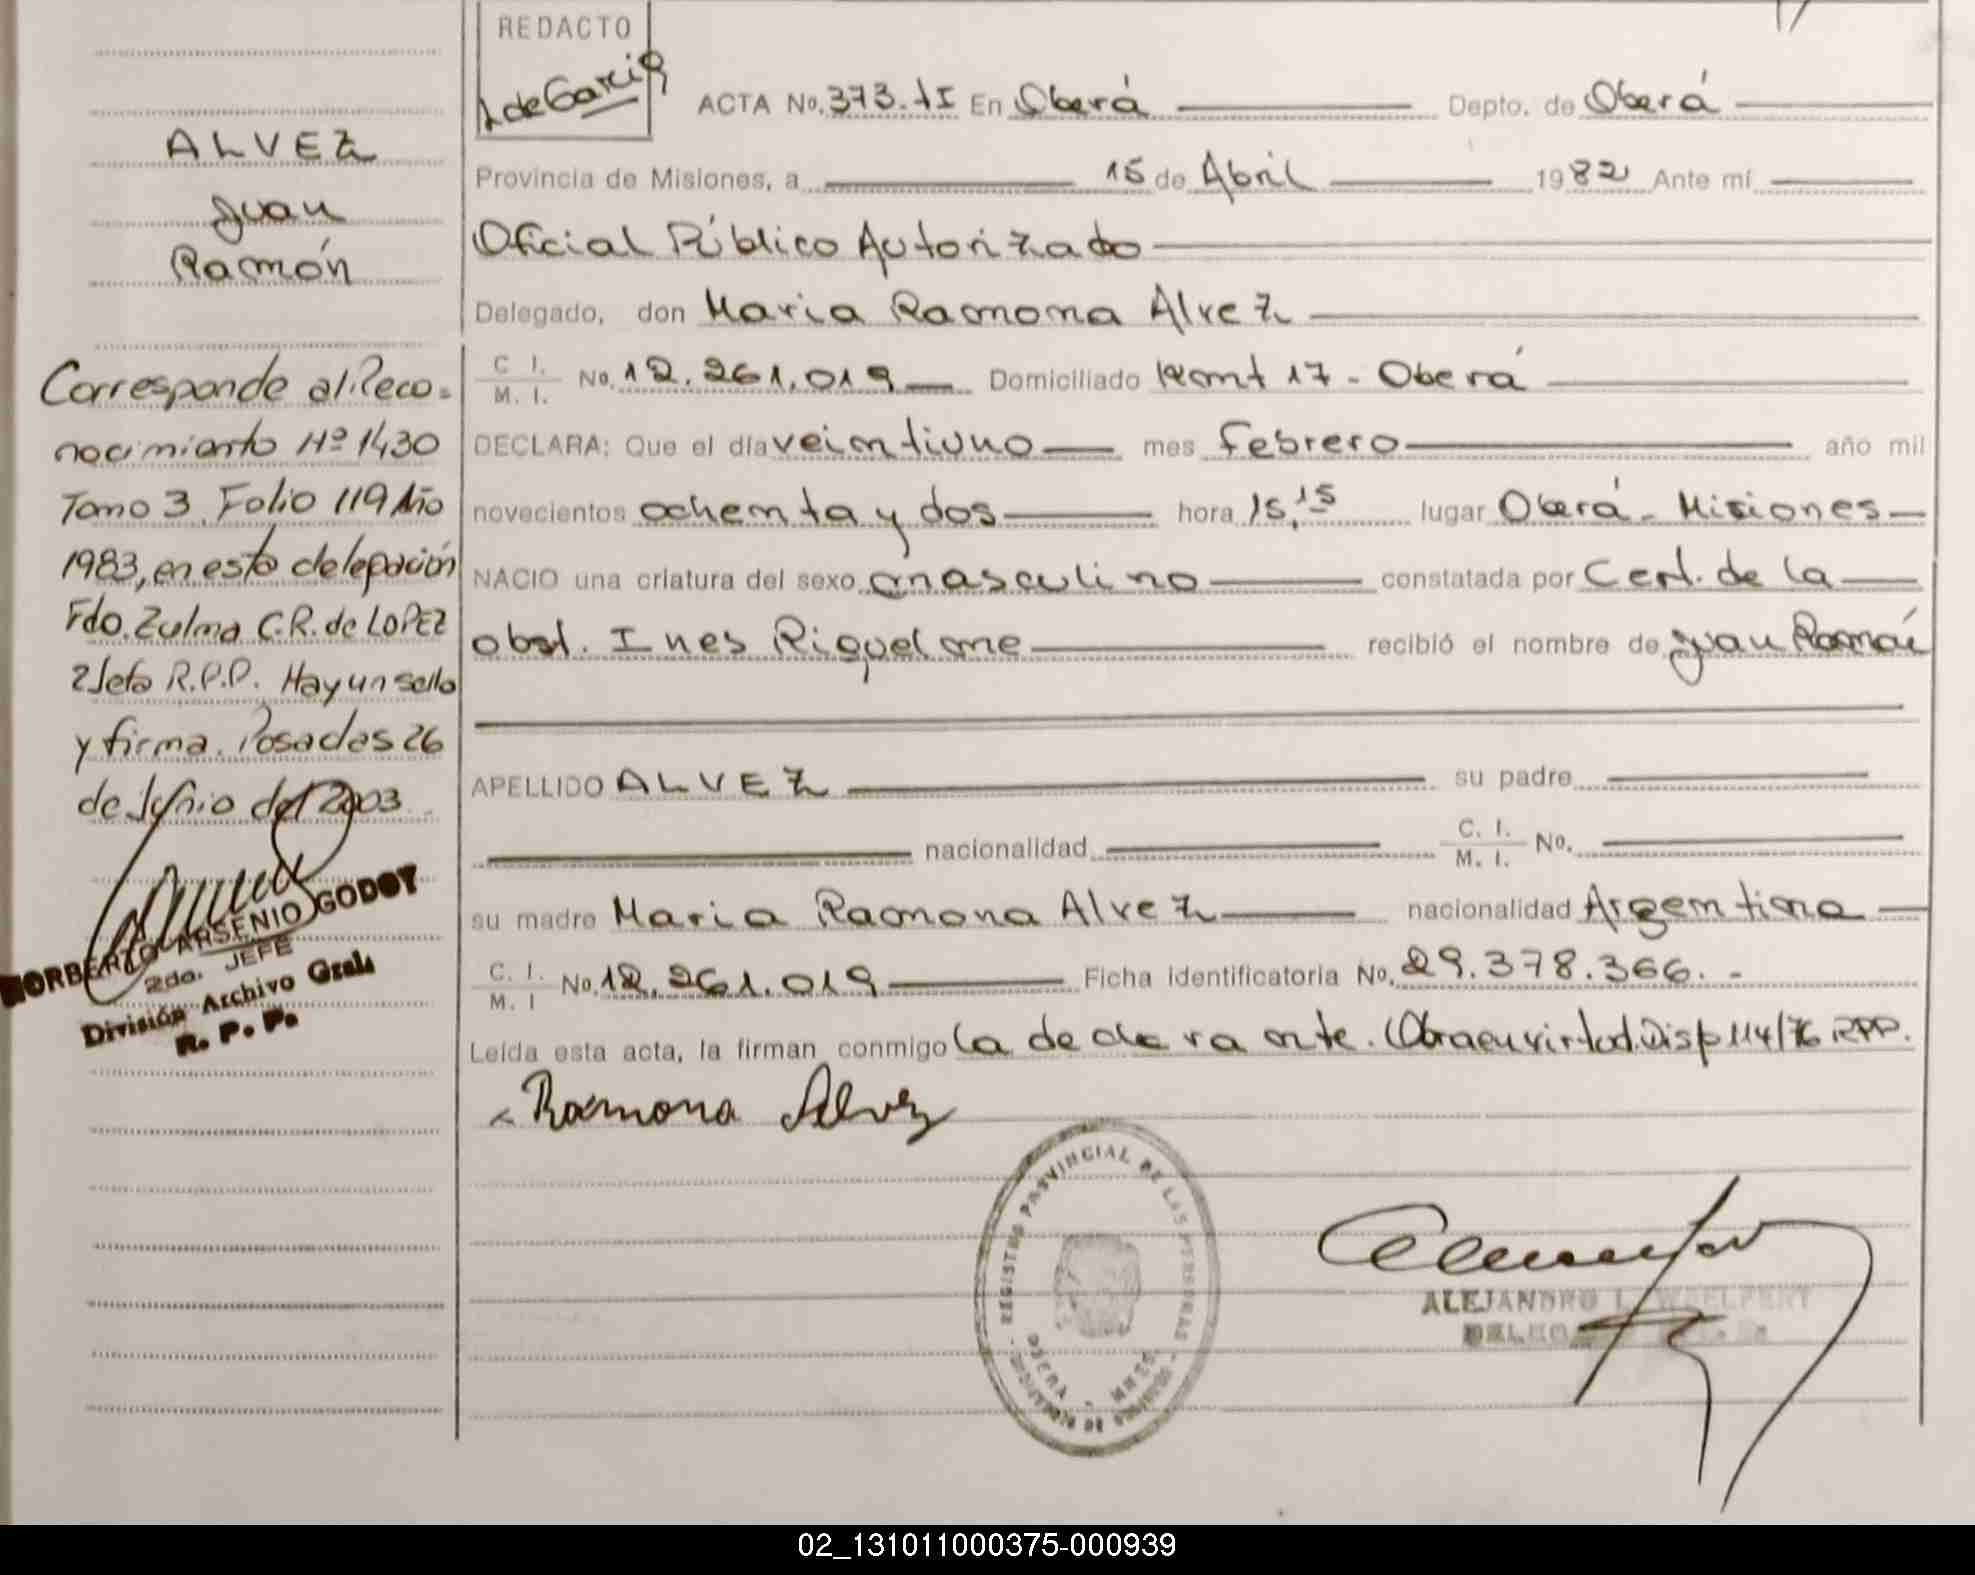 REDACTO
L de Garcia
ACTA No. 373. tI En Oberá Depto. de Oberá
Provincia de Misiones, a 15 de Abril 1982 Ante mí
Oficial Público Autorizado
Delegado, don Maria Ramona Alvez
C I. M. I. No. 12.261.019 Domiciliado Kmt 17 - Oberá
DECLARA: Que el día veintiuno mes Febrero año mil
novecientos ochenta y dos hora 15,15 lugar Oberá - Misiones
NACIO una criatura del sexo masculino constatada por Cert. de la
obst. Ines Riquelme recibió el nombre de Juan Ramón
APELLIDO ALVEZ su padre
nacionalidad C. I. M. I. No.
su madre Maria Ramona Alvez nacionalidad Argentina
C. I. M. I No. 12.261.019 Ficha identificatoria No. 29.378.366.-
Leída esta acta, la firman conmigo la declarante. Obra en virtud. Disp 114/76 RPP.
Ramona Alvez
REGISTRO PROVINCIAL DE LAS PERSONAS
OBERA - MNES.
ALEJANDRO L. WAELFERT
ALVEZ
Juan
Ramón
Corresponde al Reco=
nocimiento Nº 1430
Tomo 3 Folio 119 Año
1983, en esta delegación
Fdo. Zulma C.R. de LOPEZ
2 Jefa R.P.P. Hay un sello
y firma. Posadas 26
de Junio del 2003
NORBERTO ARSENIO GODOY
2do. JEFE
División Archivo Gral.
R. P. P.
02_131011000375-000939